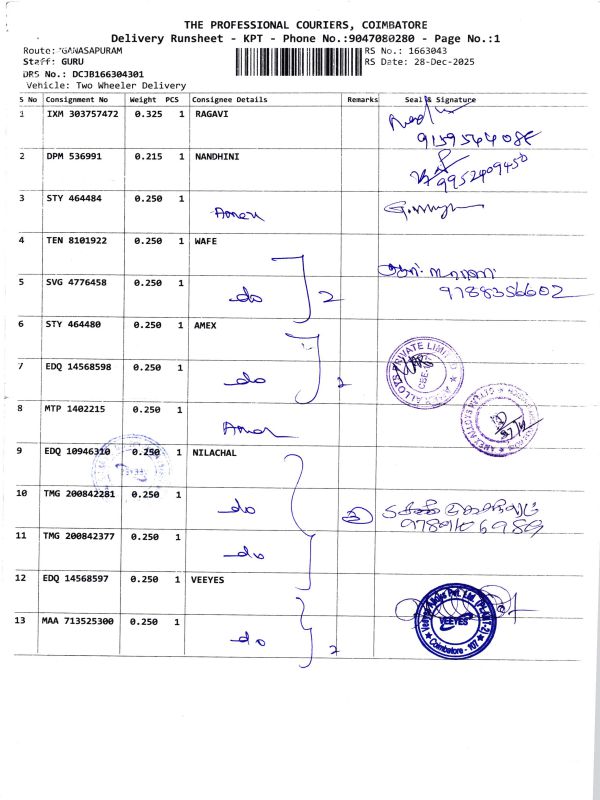 THE PROFESSIONAL COURIERS, COIMBATORE
Delivery Runsheet - KPT - Phone No.:9047080280 - Page No.:1
Route: GANASAPURAM
RS No.: 1663043
Staff: GURU
RS Date: 28-Dec-2025
DRS No.: DCJB166304301
Vehicle: Two Wheeler Delivery
S No Consignment No Weight PCS Consignee Details Remarks Seal & Signature
1 IXM 303757472 0.325 1 RAGAVI
9159564088
2 DPM 536991 0.215 1 NANDHINI
9952409450
3 STY 464484 0.250 1
4 TEN 8101922 0.250 1 WAFE
5 SVG 4776458 0.250 1 do 2
9788356602
6 STY 464480 0.250 1 AMEX
7 EDQ 14568598 0.250 1 do 2
8 MTP 1402215 0.250 1
9 EDQ 10946310 0.250 1 NILACHAL
10 TMG 200842281 0.250 1 do 3
9789106989
11 TMG 200842377 0.250 1 do
12 EDQ 14568597 0.250 1 VEEYES
Veeyes Alloys Pvt. Ltd. (PLANT-2)
VEEYES
Coimbatore - 107
13 MAA 713525300 0.250 1 do 2